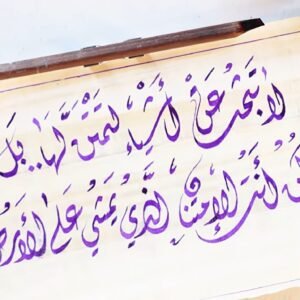 لا تبحث عن أشياء لتمتن لها.. بل
كن أنت الامتنان الذي يمشي على الأرض